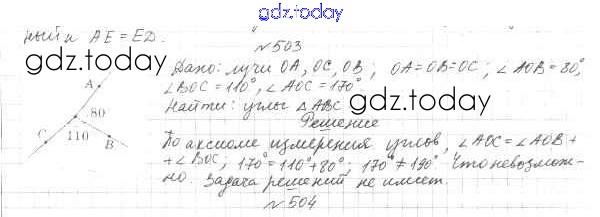 gdz.today
ный и AE = ED.
№503
gdz.today
Дано: лучи OA, OC, OB; OA=OB=OC; ∠AOB = 80°,
∠BOC = 110°, ∠AOC = 170°.
Найти: углы △ABC
gdz.today
Решение
A
80
C
110
B
По аксиоме измерения углов, ∠AOC = ∠AOB +
+ ∠BOC; 170° = 110° + 80°; 170° ≠ 190°. Что невозмож-
но. Задача решений не имеет.
gdz.today
gdz.today
№504